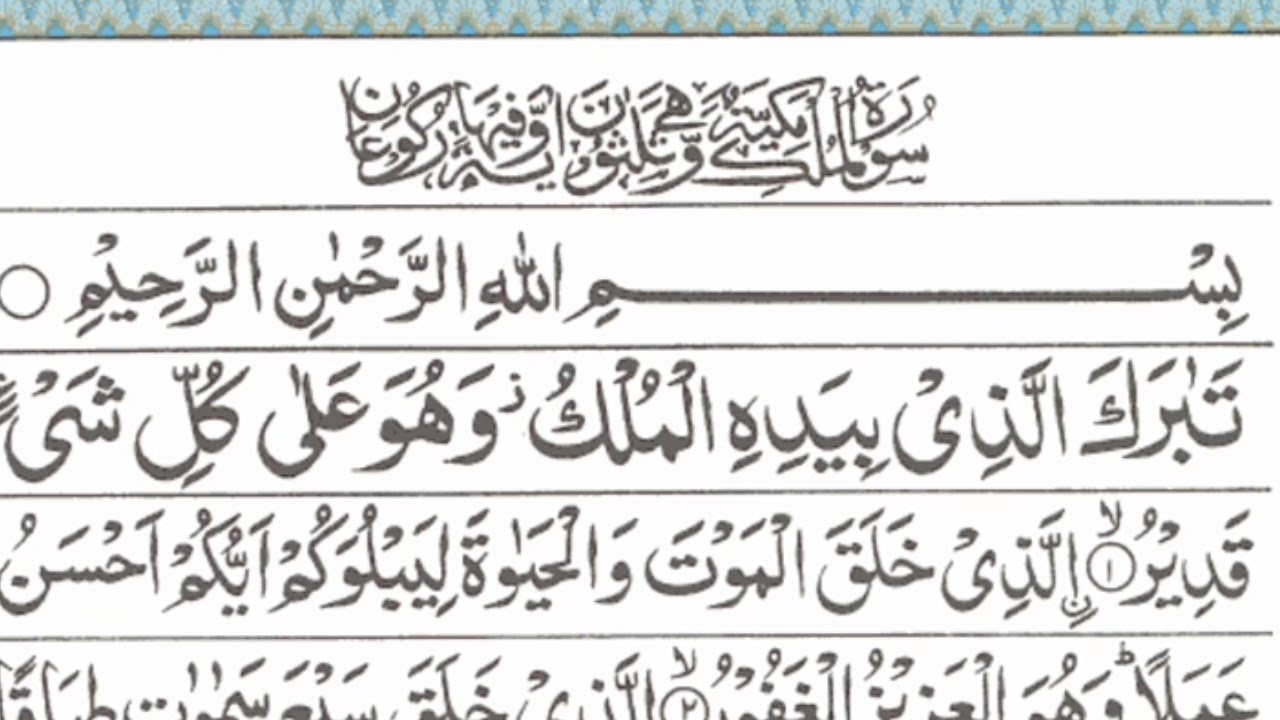 سُوْرَةُ الْمُلْكِ مَكِّيَّةٌ وَّهِيَ ثَلٰثُوْنَ اٰيَةً وَّفِيْهَا رُكُوْعَانِ
بِسْمِ اللّٰهِ الرَّحْمٰنِ الرَّحِيْمِ ○
تَبٰرَكَ الَّذِىْ بِيَدِهِ الْمُلْكُ ز وَهُوَ عَلٰى كُلِّ شَىْءٍ
قَدِيْرُ ۙ﴿۱﴾ اۨلَّذِىْ خَلَقَ الْمَوْتَ وَالْحَيٰوةَ لِيَبْلُوَكُمْ اَيُّكُمْ اَحْسَنُ
عَمَلًا ؕ وَهُوَ الْعَزِيْزُ الْغَفُوْرُ ۙ﴿۲﴾ الَّذِىْ خَلَقَ سَبْعَ سَمٰوٰتٍ طِبَاقًا